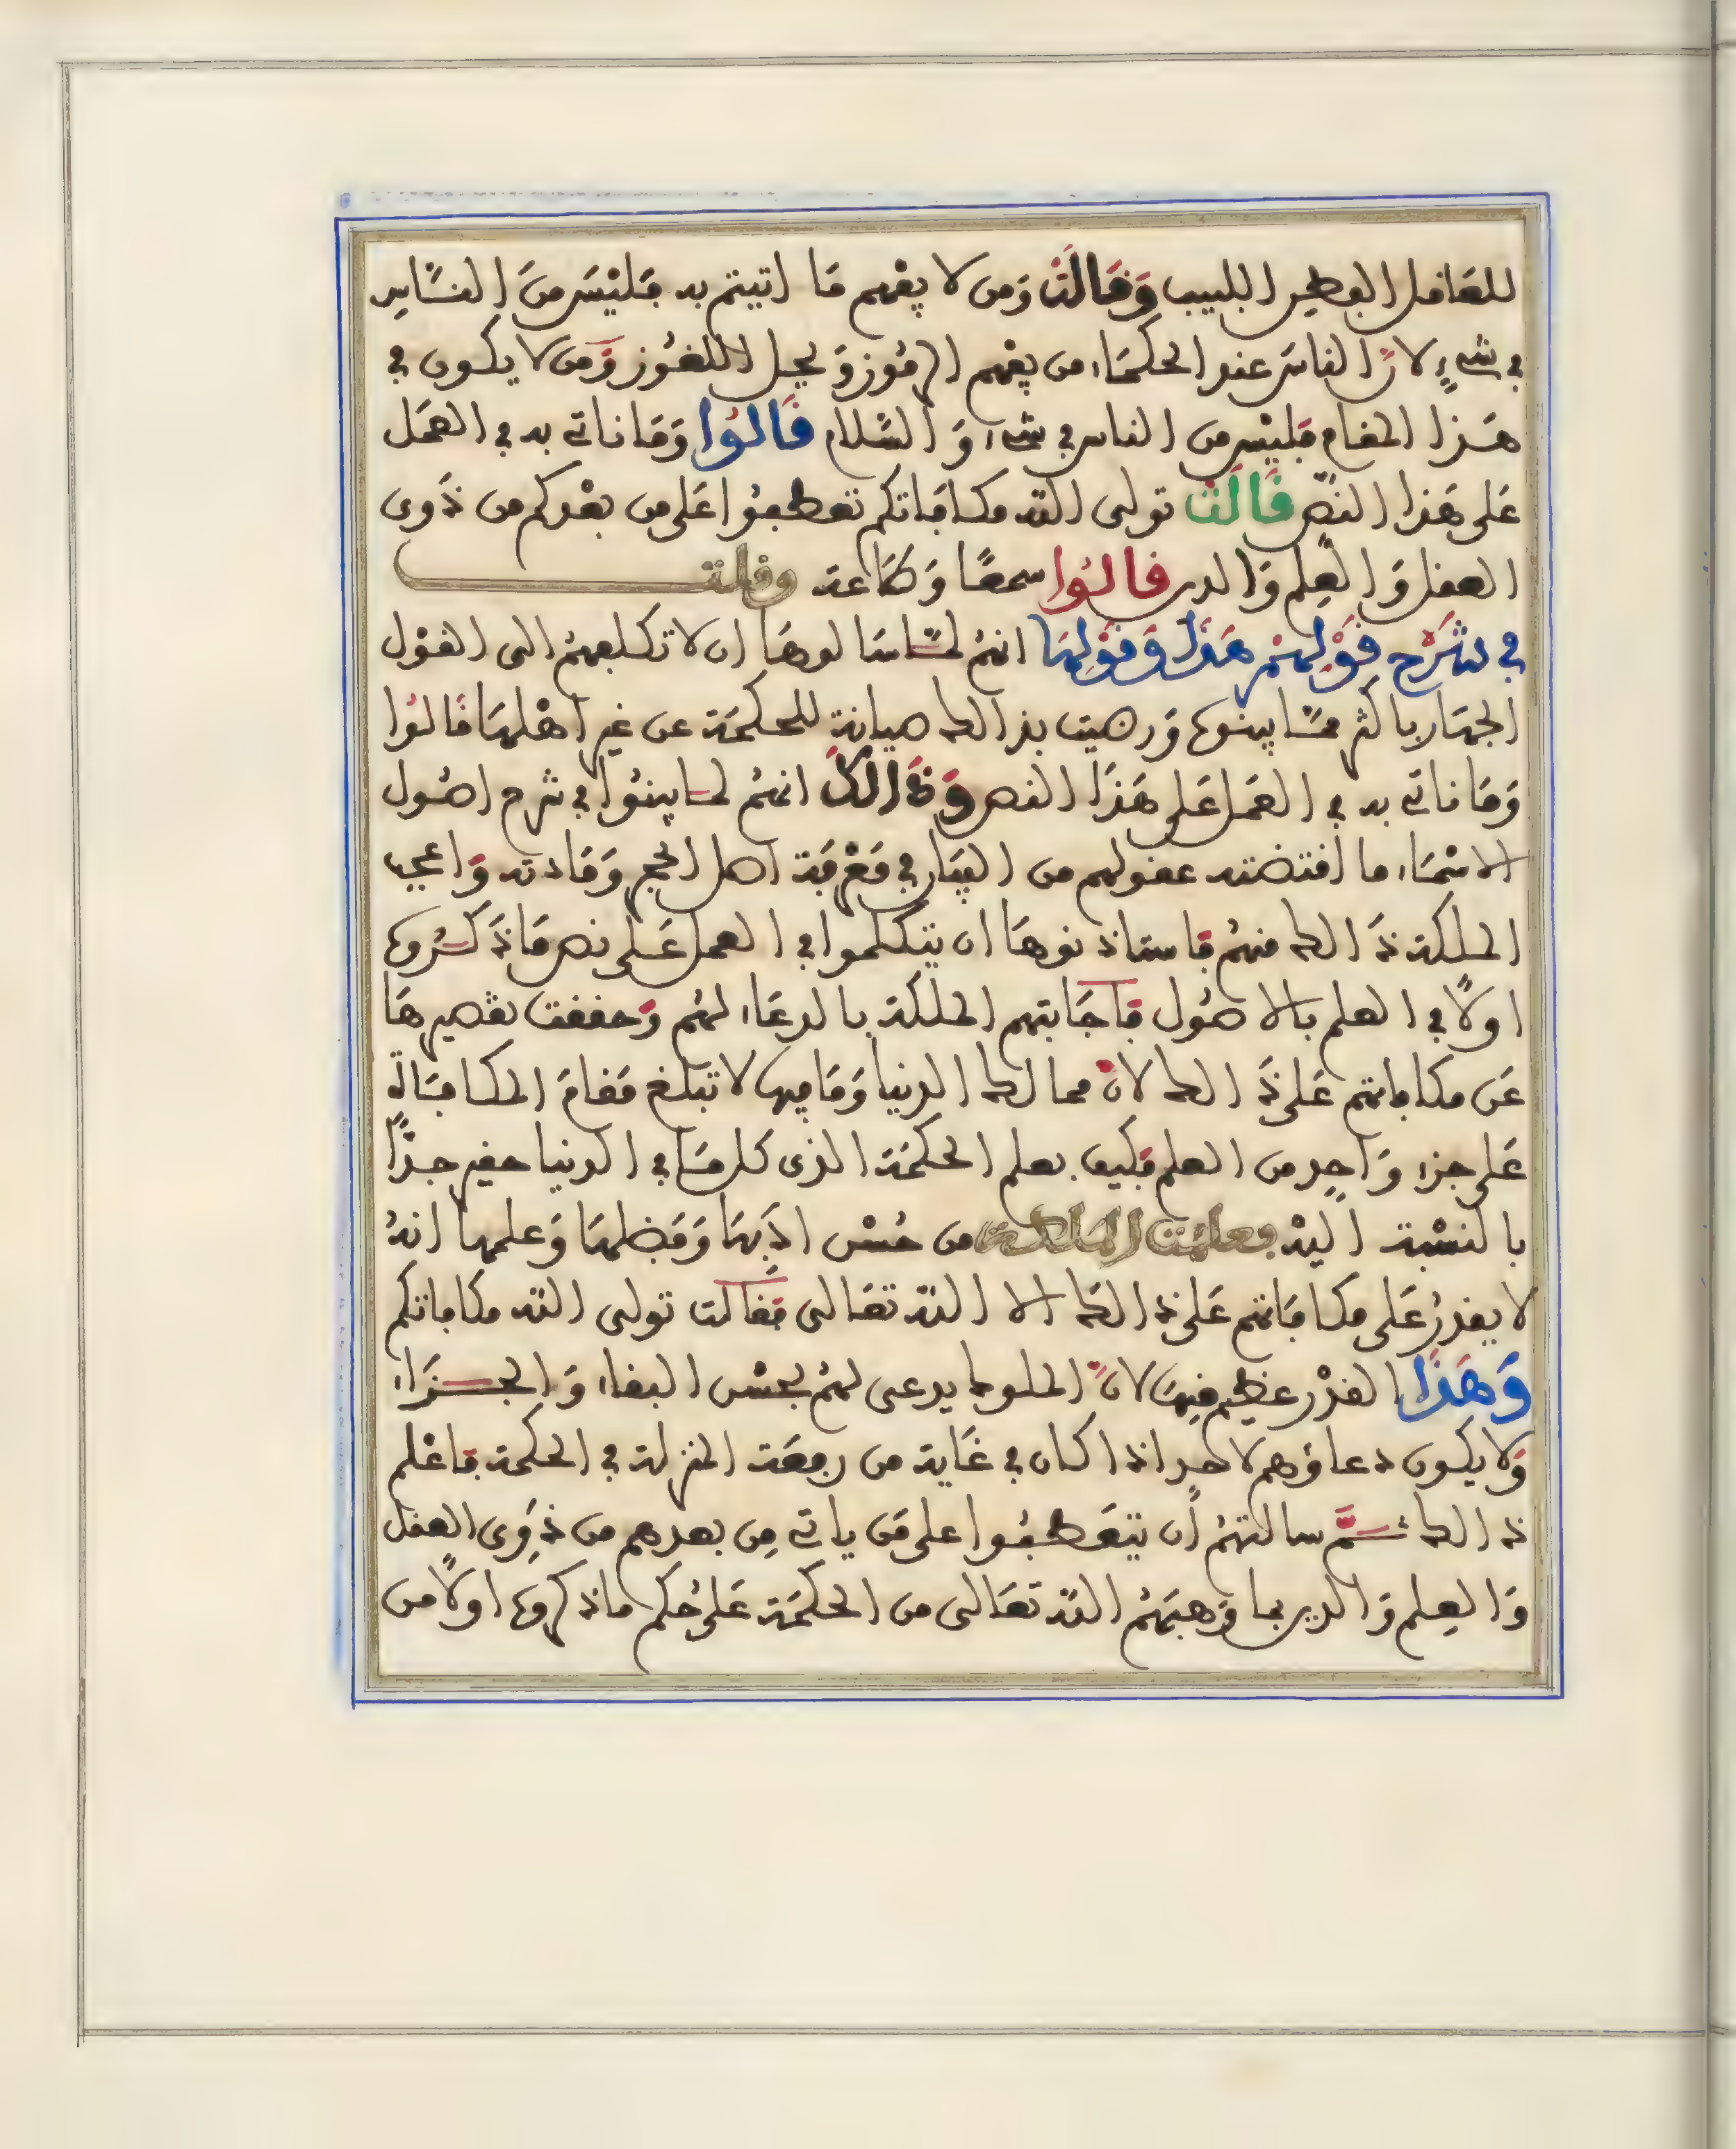 للعاقل الفطن اللبيب وقالت ومن لا يفهم ما اتيتم به فليس من الناس
في شيء لان الناس عند الحكماء من يفهم الرموز و يحل اللغوز ومن لا يكون في
هذا المقام فليس من الناس في شيء و السلام قالوا وما ناتي به في العمل
على هذا النص قالت تولى الله مكافاتكم تعطفوا على من بعدكم من ذوى
العقل و العلم و الدين قالوا سمعا و طاعة وقلت
في شرح قولهم هذا وقولها انهم لما سالوها ان لا تكلفهم الى القول
الجهار باكثر مما بينوه و رضيت بذالك صيانة للحكمة عن غير اهلها قالوا
وما ناتي به في العمل على هذا النص و ذالك انهم لما بينوا في شرح اصول
الاسماء ما اقتضته عقولهم من البيان في معرفة اصل الحجر ومادته و اعجب
الملكة ذالك منهم فاستاذنوها ان يتكلموا في العمل على نص ما ذكروه
اولا في العلم بالاصول فاجابتهم الملكة بالدعاء لهم وحققت تقصيرها
عن مكافاتهم على ذالك لان ممالك الدنيا وما فيها لا تبلغ مقام المكافاة
على جزء واحد من العلم فكيف بعلم الحكمة الذى كل ما في الدنيا حقير جدا
بالنسبة اليه فعلمت الملكة من حسن ادبها وفضلها وعلمها انه
لا يقدر على مكافاتهم على ذالك الا الله تعالى فقالت تولى الله مكافاتكم
وهذا القدر عظيم فيها لان الملوك يدعى لهم بحسن البقاء و الجزاء
ولا يكون دعاؤهم لاحد الا اذا كان في غاية من رفعة المنزلة في الحكمة فاعلم
ذالك ثم سالتهم ان يتعطفوا على من ياتي من بعدهم من ذوى العقل
و العلم و الدين بما وهبهم الله تعالى من الحكمة على حكم ما ذكروه اولا من